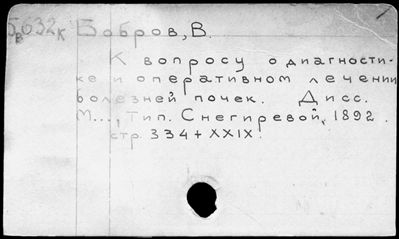 5632к Бобров, В.
К вопросу о диагности-
ке и оперативном лечении
болезней почек. Дисс.
М..., Тип. Снегиревой, 1892.
стр. 334 + XXIX.